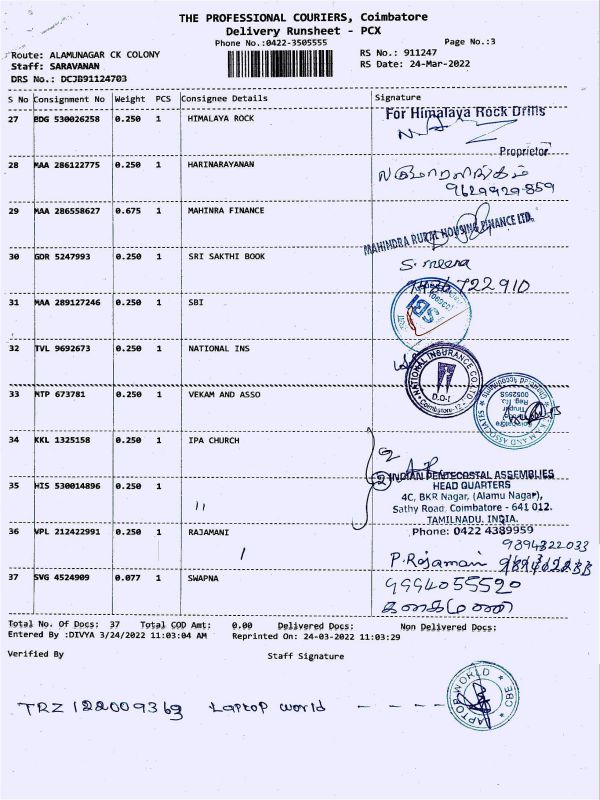 THE PROFESSIONAL COURIERS, Coimbatore
Delivery Runsheet - PCX
Phone No.:0422-3505555 Page No.:3
Route: ALAMUNAGAR CK COLONY RS No.: 911247
Staff: SARAVANAN RS Date: 24-Mar-2022
DRS No.: DCJB91124703
S No Consignment No Weight PCS Consignee Details Signature
27 BDG 530026258 0.250 1 HIMALAYA ROCK For Himalaya Rock Drills
Proprietor
28 MAA 286122775 0.250 1 HARINARAYANAN
9629929859
29 MAA 286558627 0.675 1 MAHINRA FINANCE MAHINDRA RURAL HOUSING FINANCE LTD.
30 GDR 5247993 0.250 1 SRI SAKTHI BOOK S. meena
722910
31 MAA 289127246 0.250 1 SBI SBI
32 TVL 9692673 0.250 1 NATIONAL INS NATIONAL INSURANCE CO.LTD
D.O-I
Coimbatore-12
33 NTP 673781 0.250 1 VEKAM AND ASSO
34 KKL 1325158 0.250 1 IPA CHURCH 2
35 HIS 530014896 0.250 1 " 2 INDIAN PENTECOSTAL ASSEMBLIES
HEAD QUARTERS
4C, BKR Nagar, (Alamu Nagar),
Sathy Road, Coimbatore - 641 012.
TAMILNADU, INDIA.
Phone: 0422 4389959
36 VPL 212422991 0.250 1 RAJAMANI 9394322033
P. Rajamani
37 SVG 4524909 0.077 1 SWAPNA 9994055520
Total No. Of Docs: 37 Total COD Amt: 0.00 Delivered Docs: Non Delivered Docs:
Entered By :DIVYA 3/24/2022 11:03:04 AM Reprinted On: 24-03-2022 11:03:29
Verified By Staff Signature
TRZ 122009369 Laptop world - - - -
LAPTOP WORLD CBE